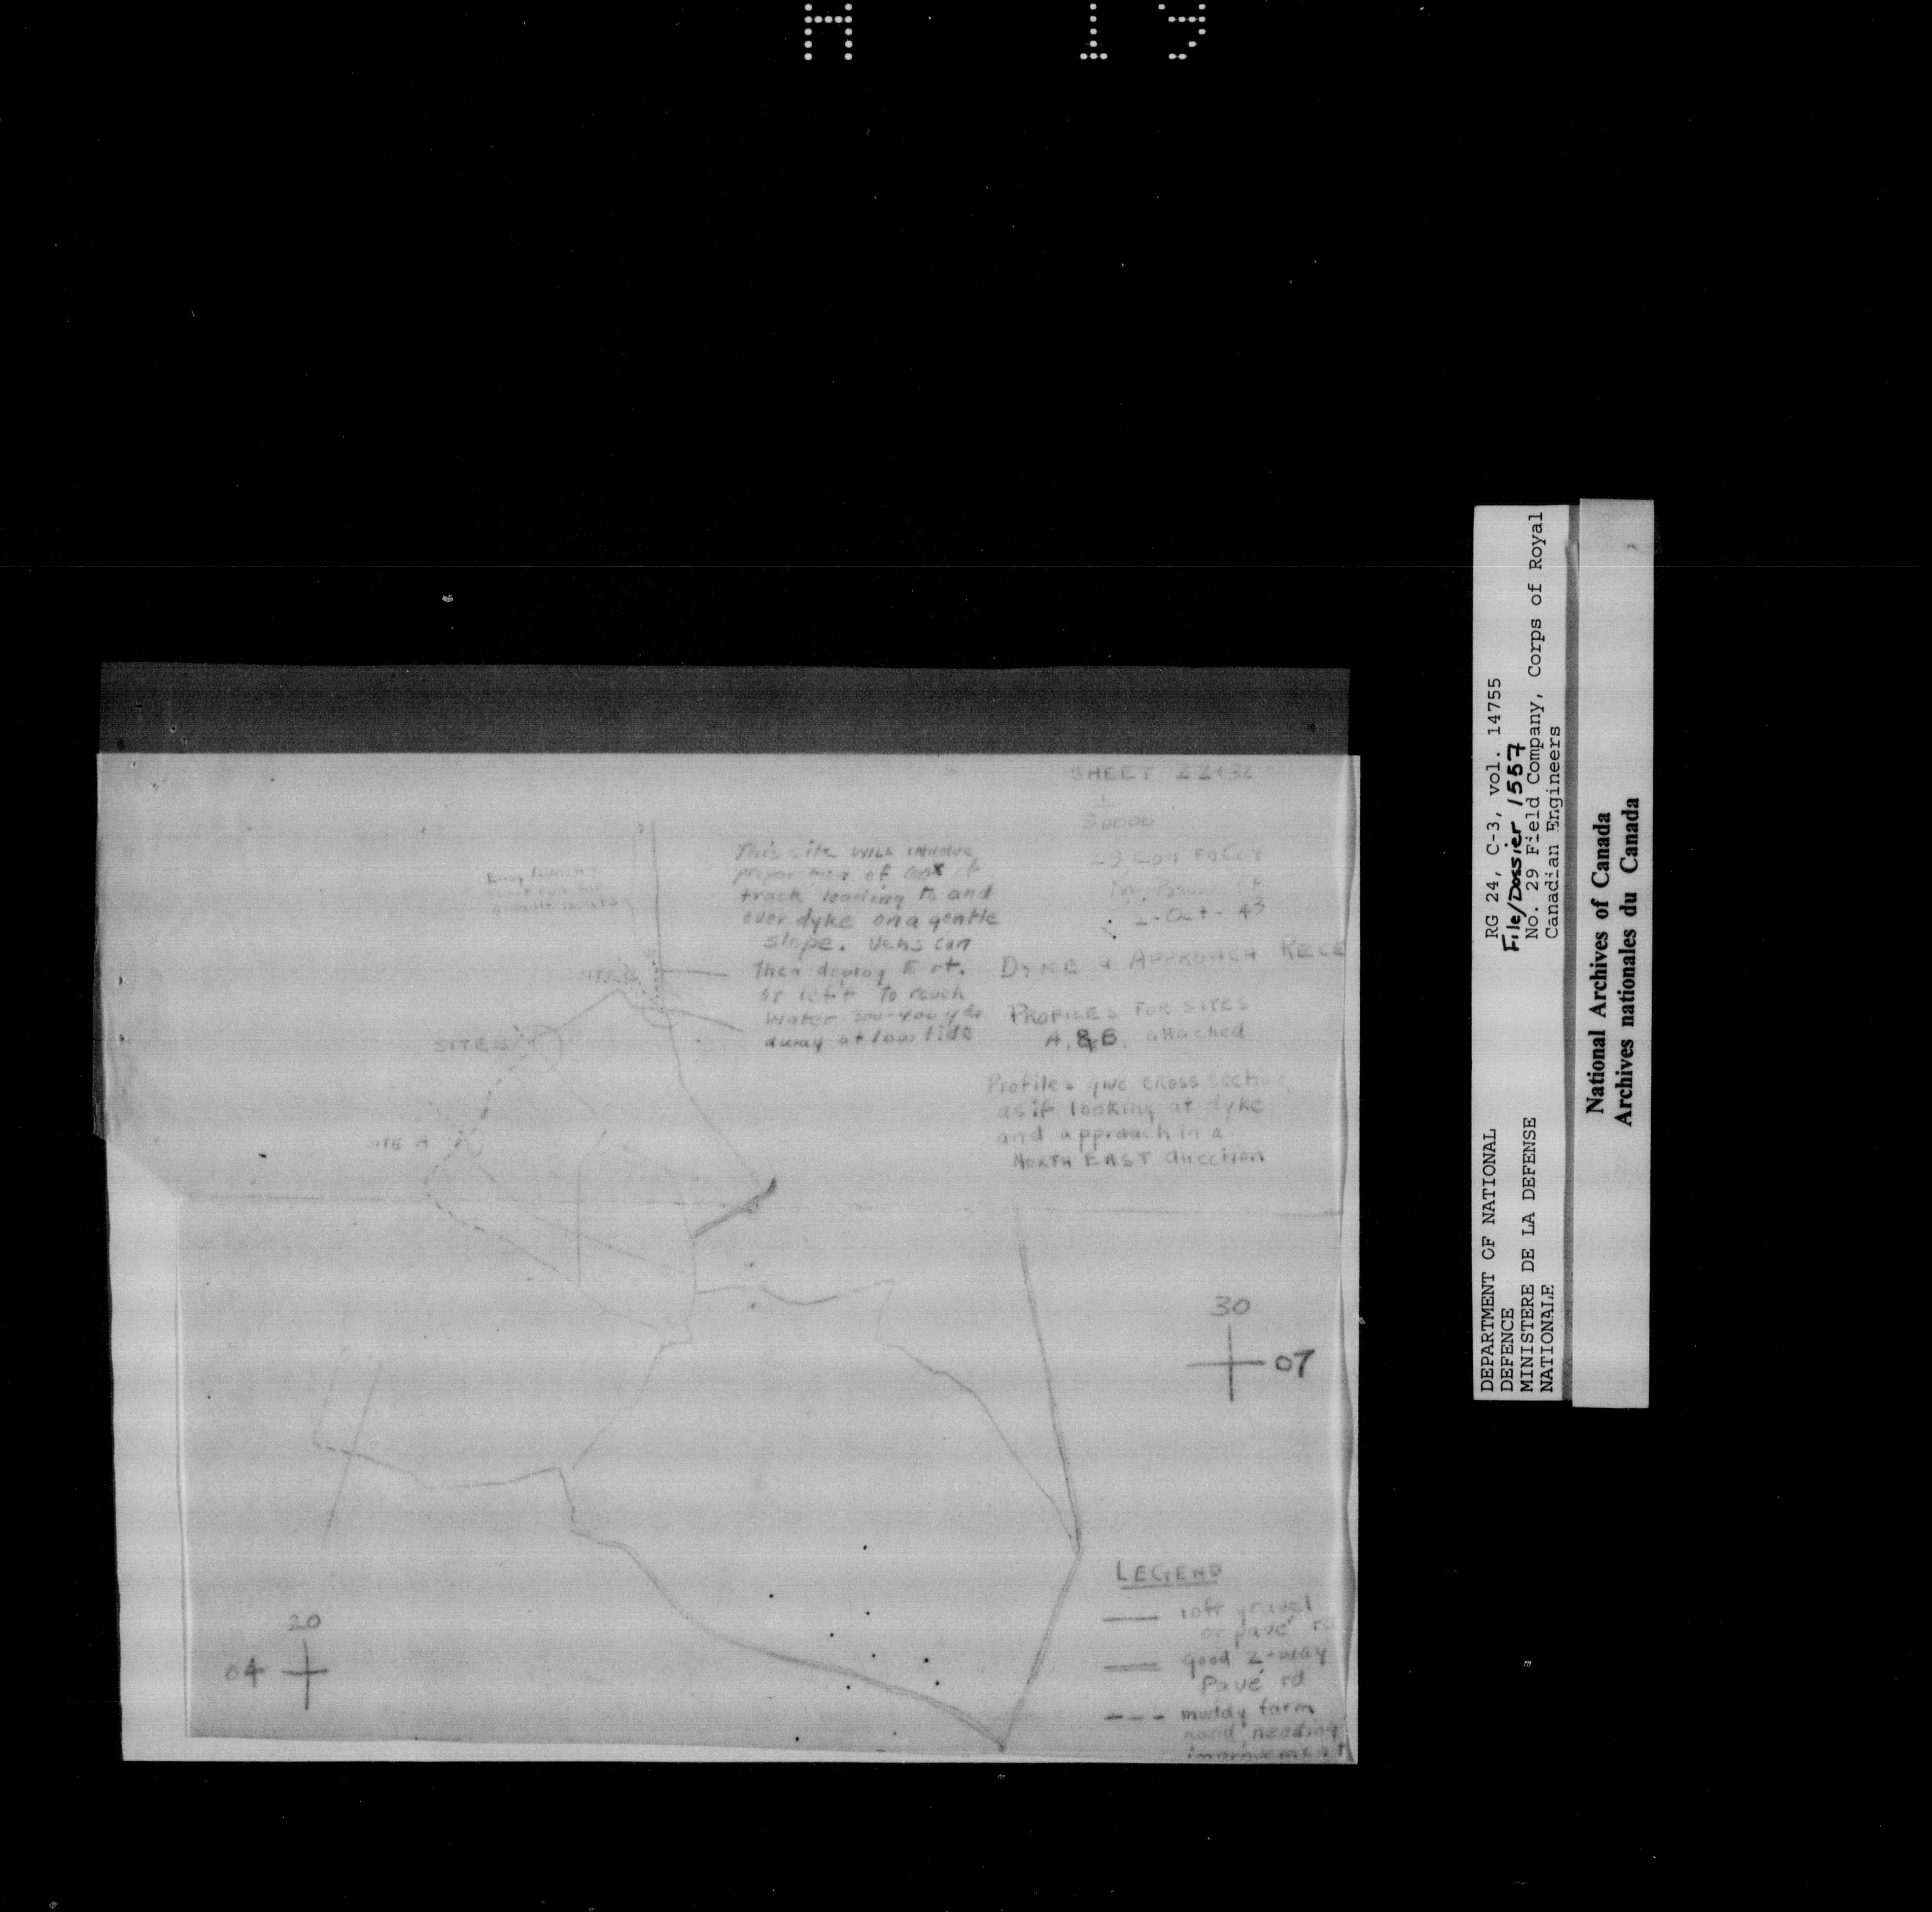 SHEET 22+32
1
50000
2-Oct-43
DYKE & APPROACH RECCE
PROFILES FOR SITES
A, & B, attached
Profiles give CROSS section
as if looking at dyke
and approach in a
NORTH EAST direction
This site WILL involve
preparation of 600x of
track leading to and
over dyke on a gentle
slope. Vehs can
Then deploy to rt.
or left To reach
water 300-400 yds
away at low tide
assault boats
SITE
SITE B
SITE A
30
07
20
04
LEGEND
10ft gravel
or pavé rd
good 2-way
Pavé rd
muddy farm
road, needing
improvement
RG 24, C-3, vol. 14755
File/Dossier 1557
No. 29 Field Company, Corps of Royal
Canadian Engineers
DEPARTMENT OF NATIONAL
DEFENCE
MINISTERE DE LA DEFENSE
NATIONALE
National Archives of Canada
Archives nationales du Canada